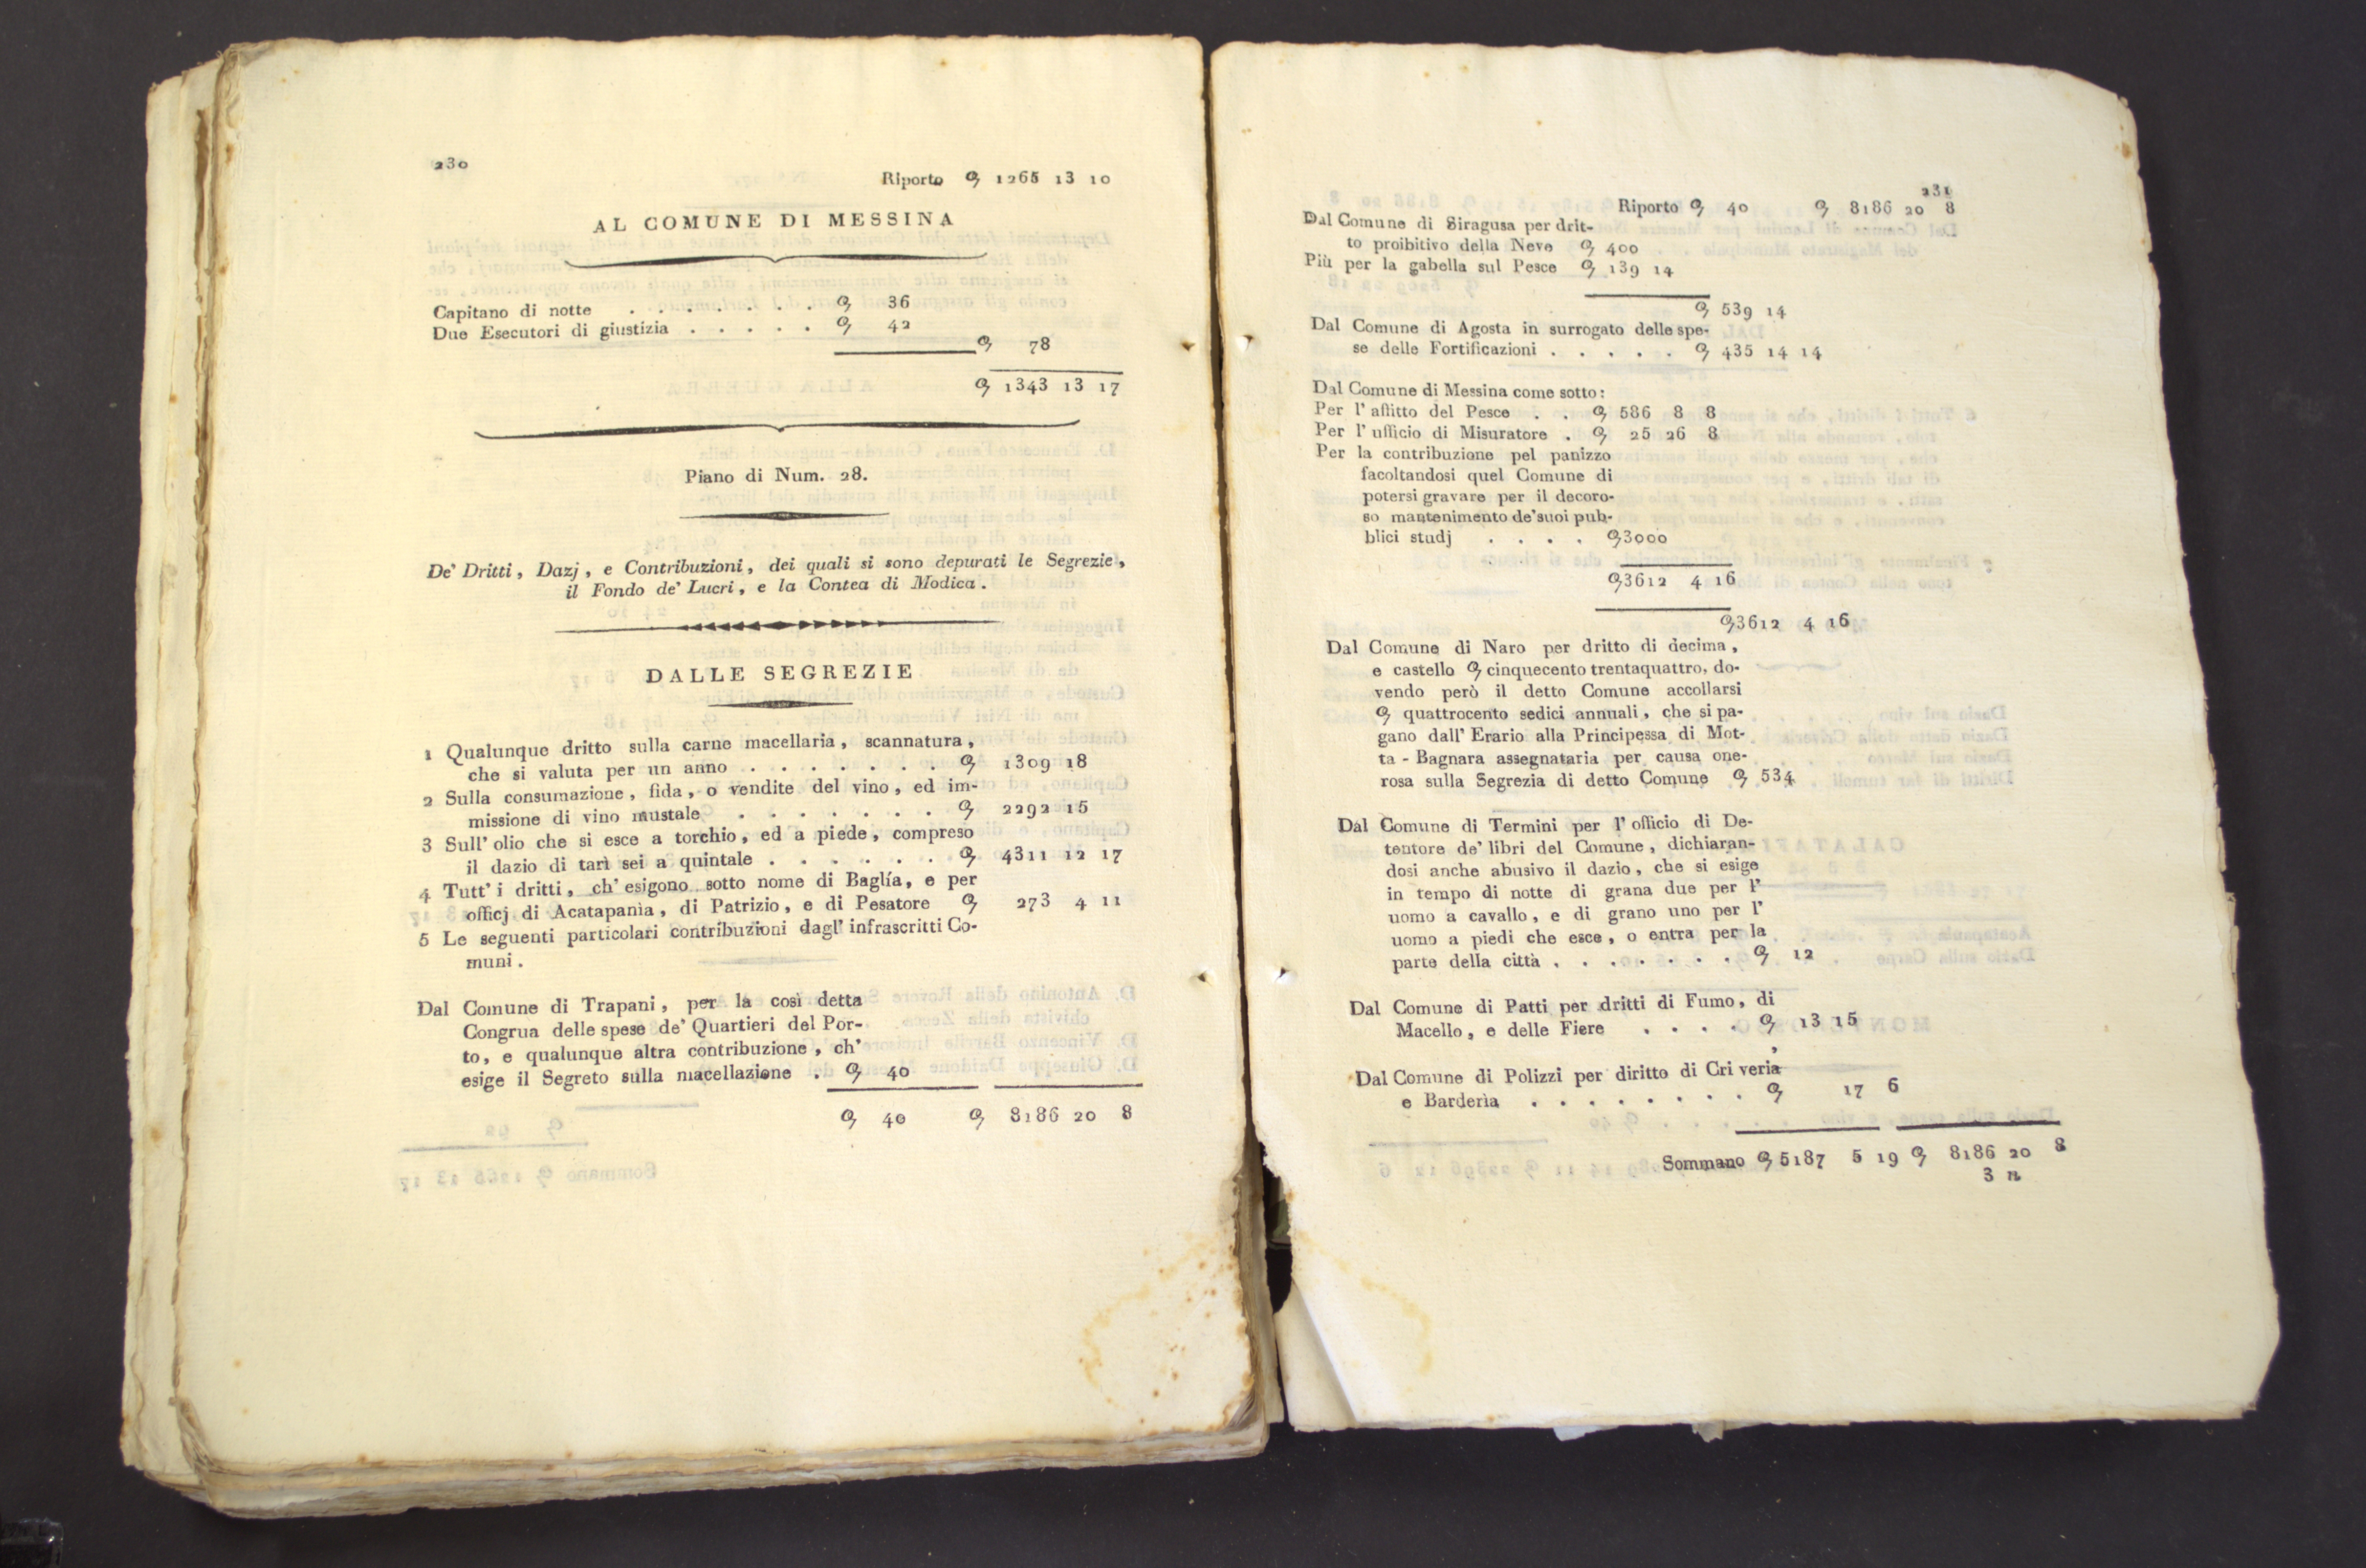 230
Riporto ꝯ 1265 13 10
AL COMUNE DI MESSINA
Capitano di notte . . . . . . . ꝯ 36
Due Esecutori di giustizia . . . . . ꝯ 42
ꝯ 78
ꝯ 1343 13 17
Piano di Num. 28.
De' Dritti, Dazj, e Contribuzioni, dei quali si sono depurati le Segrezie,
il Fondo de' Lucri, e la Contea di Modica.
DALLE SEGREZIE
1 Qualunque dritto sulla carne macellaria, scannatura,
che si valuta per un anno . . . . . . . ꝯ 1309 18
2 Sulla consumazione, fida, o vendite del vino, ed im-
missione di vino mustale . . . . . . . ꝯ 2292 15
3 Sull' olio che si esce a torchio, ed a piede, compreso
il dazio di tarì sei a quintale . . . . . . ꝯ 4311 12 17
4 Tutt' i dritti, ch' esigono sotto nome di Baglía, e per
officj di Acatapanìa, di Patrizio, e di Pesatore ꝯ 273 4 11
5 Le seguenti particolari contribuzioni dagl' infrascritti Co-
muni.
Dal Comune di Trapani, per la così detta
Congrua delle spese de' Quartieri del Por-
to, e qualunque altra contribuzione, ch'
esige il Segreto sulla macellazione . ꝯ 40
ꝯ 40 ꝯ 8186 20 8
231
Riporto ꝯ 40 ꝯ 8186 20 8
Dal Comune di Siragusa per drit-
to proibitivo della Neve ꝯ 400
Più per la gabella sul Pesce ꝯ 139 14
ꝯ 539 14
Dal Comune di Agosta in surrogato delle spe-
se delle Fortificazioni . . . . . ꝯ 435 14 14
Dal Comune di Messina come sotto:
Per l' affitto del Pesce . . ꝯ 586 8 8
Per l' ufficio di Misuratore . ꝯ 25 26 8
Per la contribuzione pel panizzo
facoltandosi quel Comune di
potersi gravare per il decoro-
so mantenimento de' suoi pub-
blici studj . . . . ꝯ3000
ꝯ3612 4 16
ꝯ3612 4 16
Dal Comune di Naro per dritto di decima,
e castello ꝯ cinquecento trentaquattro, do-
vendo però il detto Comune accollarsi
ꝯ quattrocento sedici annuali, che si pa-
gano dall' Erario alla Principessa di Mot-
ta - Bagnara assegnataria per causa one-
rosa sulla Segrezia di detto Comune ꝯ 534
Dal Comune di Termini per l' officio di De-
tentore de' libri del Comune, dichiaran-
dosi anche abusivo il dazio, che si esige
in tempo di notte di grana due per l'
uomo a cavallo, e di grano uno per l'
uomo a piedi che esce, o entra per la
parte della città . . . . . . . ꝯ 12
Dal Comune di Patti per dritti di Fumo, di
Macello, e delle Fiere . . . . ꝯ 13 15
Dal Comune di Polizzi per diritto di Cri veria
e Barderìa . . . . . . . . ꝯ 17 6
Sommano ꝯ 5187 5 19 ꝯ 8186 20 8
3 n